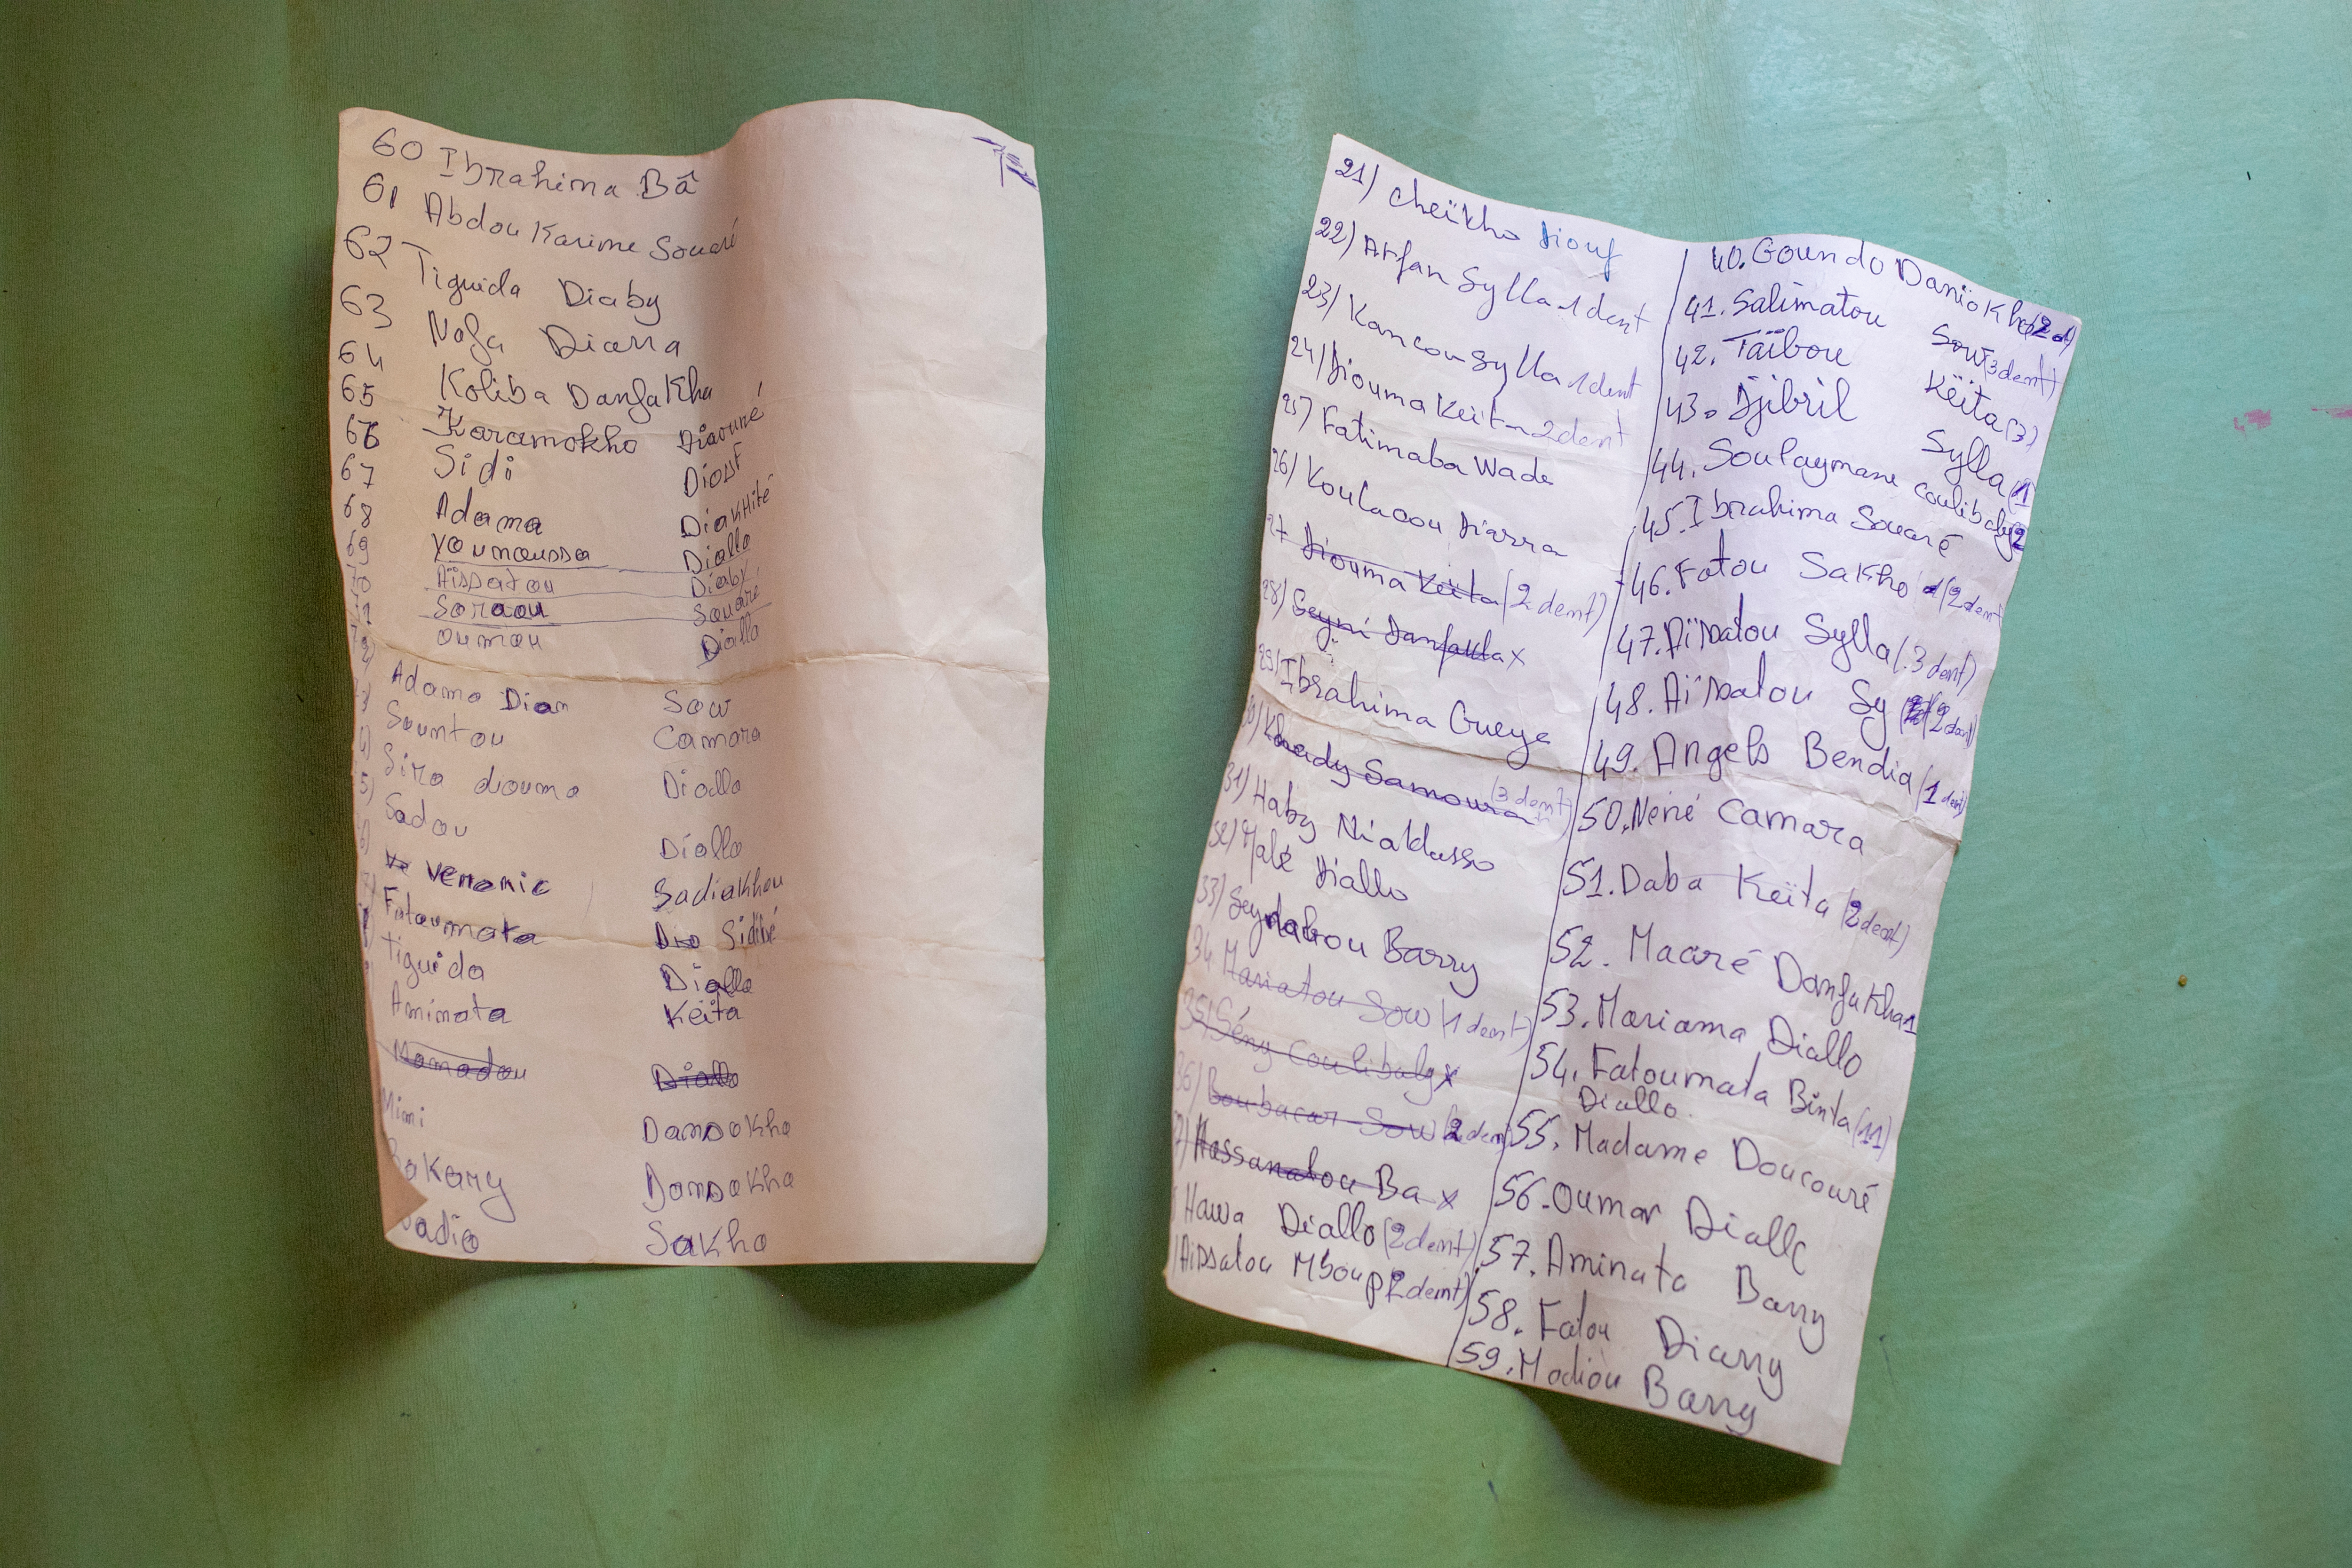 60 Ibrahima Bâ
61 Abdou Karime Souaré
62 Tiguida Diaby
63 Nofa Diarra
64 Koliba DanfaKha
65 Karamokho Diaouné
66 Sidi Diouf
67 Adama DiakHité
68 Younoussa Diallo
69 Aïssatou Diaby
70 Soraou Souaré
71 oumou Diallo
Adama Dian Sow
Sountou Camara
Sira diouma Diallo
5) Sadou Diallo
6) venonic Sadiakhou
7) Fatoumata Sidibé
Tiguida Diallo
Aminata Keïta
Mamadou Diallo
Mimi DansoKho
Bakary DansoKho
Sadio Sakho
21) Cheïkho Diouf
22) Arfan Sylla 1 dent
23) Kancou Sylla 1 dent
24) Diouma Keita 2 dent
25) Fatimaba Wade
26) Koulacou Diarra
27 Diouma Keïta (2 dent)
28) Seyni Danfakha x
29) Ibrahima Gueye
30) Khady Samoura (3 dent)
31) Haby Niakhasso
32) Malé Diallo
33) Seynabou Barry
34 Mariatou Sow (1 dent)
35) Sény Coulibaly x
36) Boubacar Sow (2 dent
37) Hassanatou Ba x
Hawa Diallo (2 dent)
Aïssatou Mboup 2 dent)
40. Goundo DansoKho (2 d)
41. Salimatou Sow (3 dent)
42. Taïbou Keïta (3)
43. Djibril Sylla (1
44. Soulaymane coulibaly 2
45. Ibrahima Souaré
46. Fatou Sakho (2 dent
47. Aïssatou Sylla (3 dent)
48. Aïssatou Sy (2 dent)
49. Angelo Bendia (1 dent)
50. Nené Camara
51. Daba Keïta (2 dent)
52. Macré DanfaKha 1
53. Mariama Diallo
54. Fatoumata Binta (11)
Diallo
55. Madame Doucouré
56. Oumar Diallo
57. Aminata Barry
58. Fatou Diarry
59. Modiou Barry